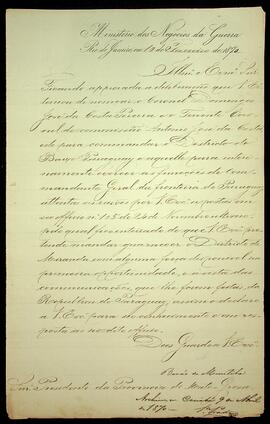 Ministério dos Negocios da Guerra
Rio de Janeiro, em 12 de Fevereiro de 1870
Illmo e Exmo Snr
Ficando approvada a deliberação que V. Ex
tomou de nomear o Coronel Domingos
José da Costa Pereira e o Tenente Coro
nel de commissão Antonio José da Costa
este para commandar o Districto do
Baixo Paraguay e aquelle para inte
namente exercer as funcções de Com
mandante Geral da fronteira do Paraguay
attentas as razões por V. Exa expostas em
seo officio no 125 de 24 de Novembro
pelo qual fico inteirado de que V. Exa pre
tende mandar guarnecer o Districto de
Miranda com alguma força de
primeira opportunidade, e á vista das
communicações que lhe forem feitas da
Republica do Paraguay, assim o declaro
a V. Exa para seo conhecimento e em res
posta ao no dito officio.
Deos Guarde a V. Exa
Barão de Muritiba
Snr. Presidente da Provincia de Mato-Grosso
9 de Abril
de 1870